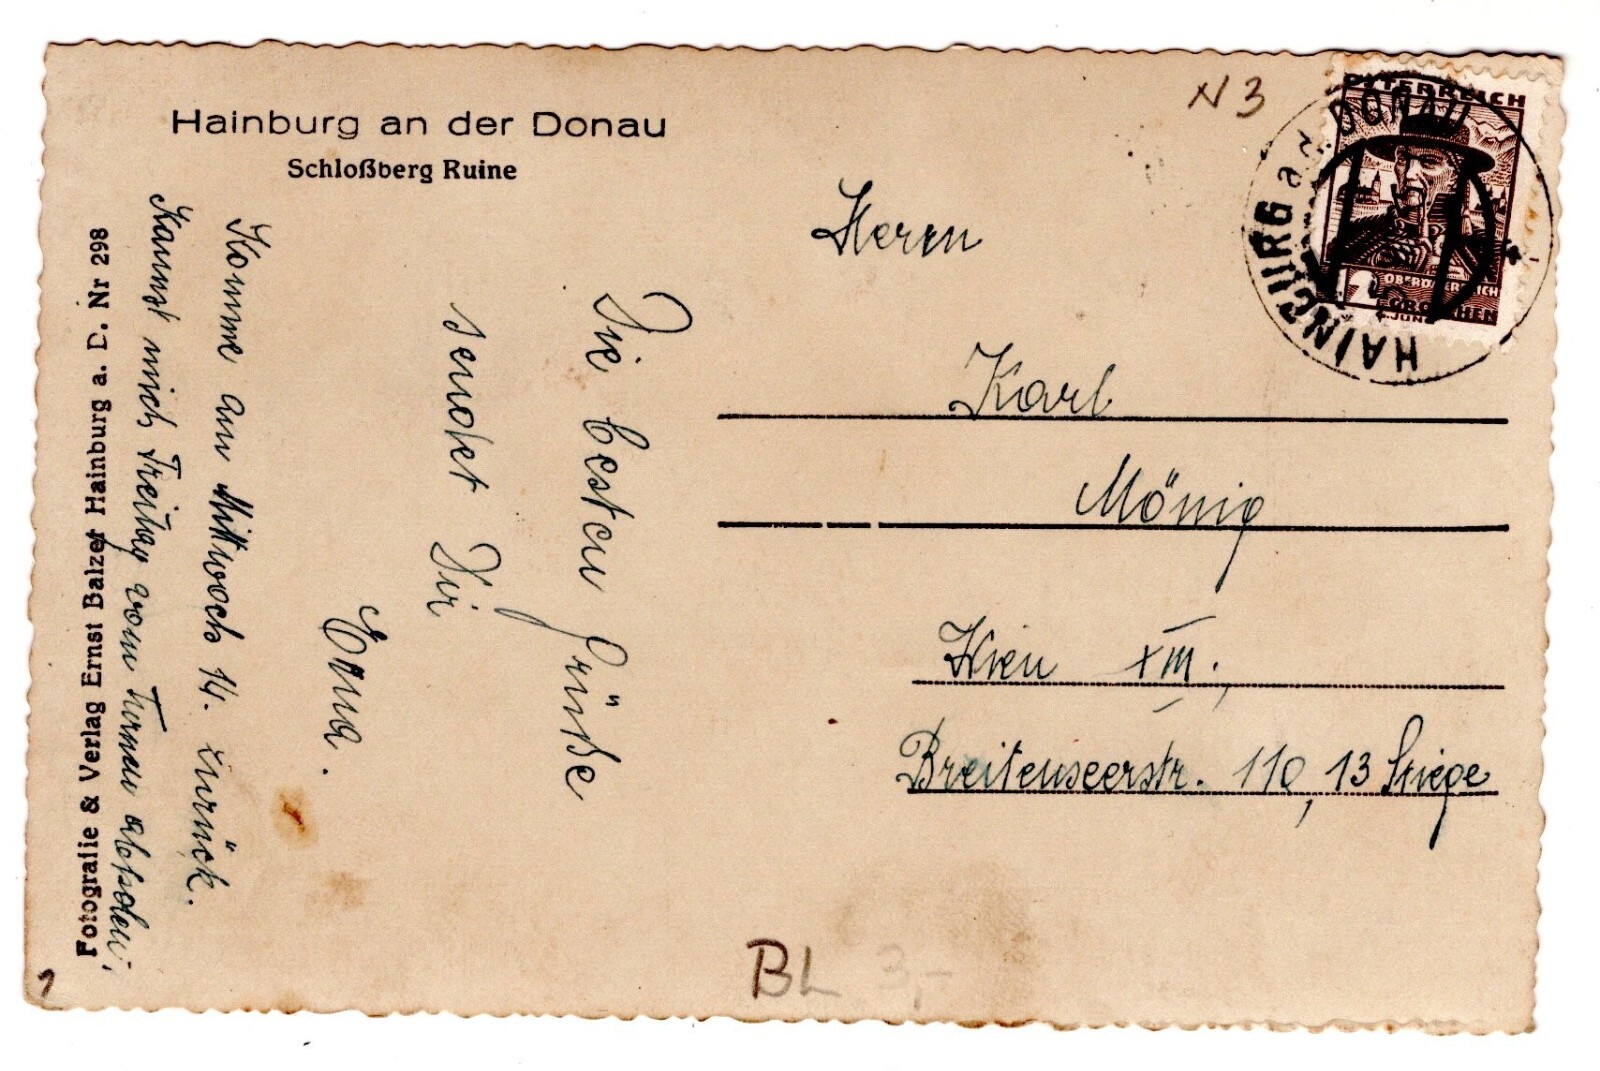 Hainburg an der Donau
Schloßberg Ruine
Fotografie & Verlag Ernst Balzer Hainburg a. D. Nr 298
Die besten Grüße
sendet Dir
Erna.
Komme am Mittwoch 14. zurück.
Kannst mich Freitag vom Turnen abholen.
N 3
ÖSTERREICH
OBERÖSTERREICH
GROSCHEN
HAINBURG a. d. DONAU
Herrn
Karl
Mönig
Wien XIII.,
Breitenseerstr. 110, 13 Stiege
BL 3,-